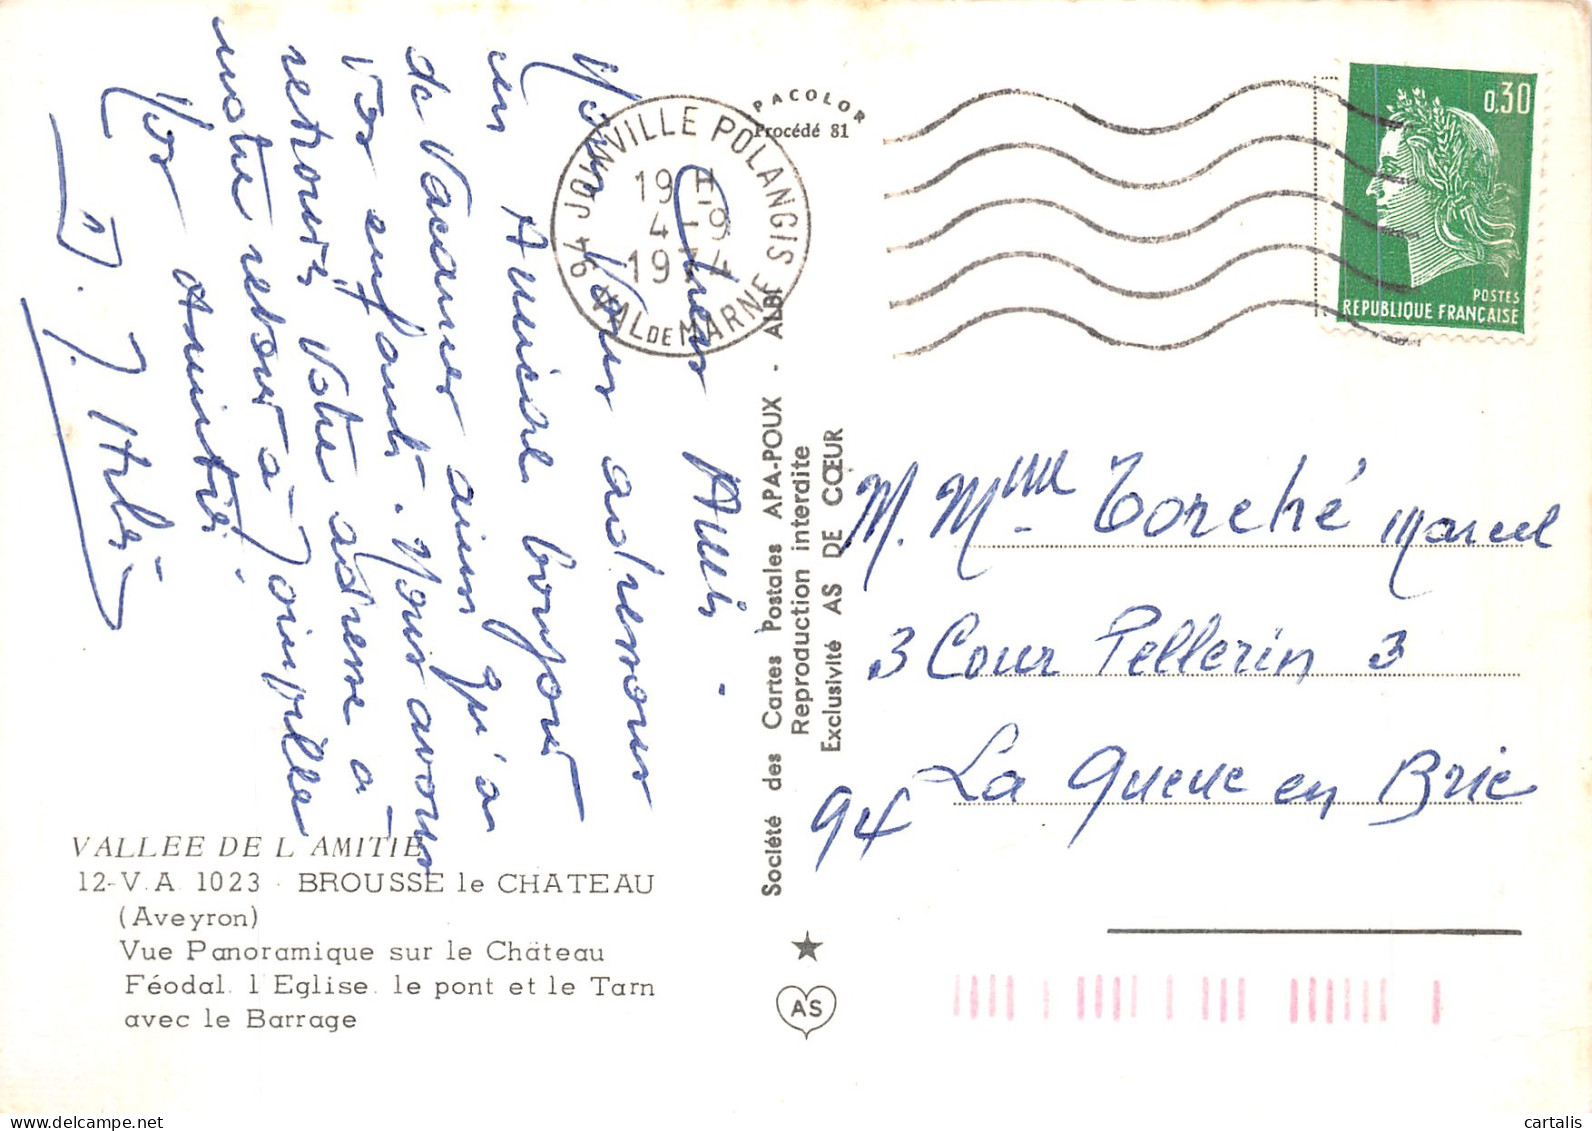 Chers Amis.
Nous vous adressons
un Amical bonjour
de Vacances ainsi qu'à
Vos enfants. Nous avons
retrouvé votre adresse à
notre retour à Joinville
Vos Amitié
PACOLOR
Procédé 81
94 JOINVILLE POLANGIS
19H
4 - 9
1974
VAL DE MARNE
0,30
POSTES
REPUBLIQUE FRANÇAISE
Société des Cartes Postales APA-POUX - ALBI
Reproduction interdite
Exclusivité AS DE CŒUR
M. Mme Torché Marcel
3 Cour Pellerin 3
La Queue en Brie
94
VALLEE DE L'AMITIE
12-V.A. 1023 - BROUSSE le CHATEAU
(Aveyron)
Vue Panoramique sur le Château
Féodal. l'Eglise. le pont et le Tarn
avec le Barrage
AS
cartalis